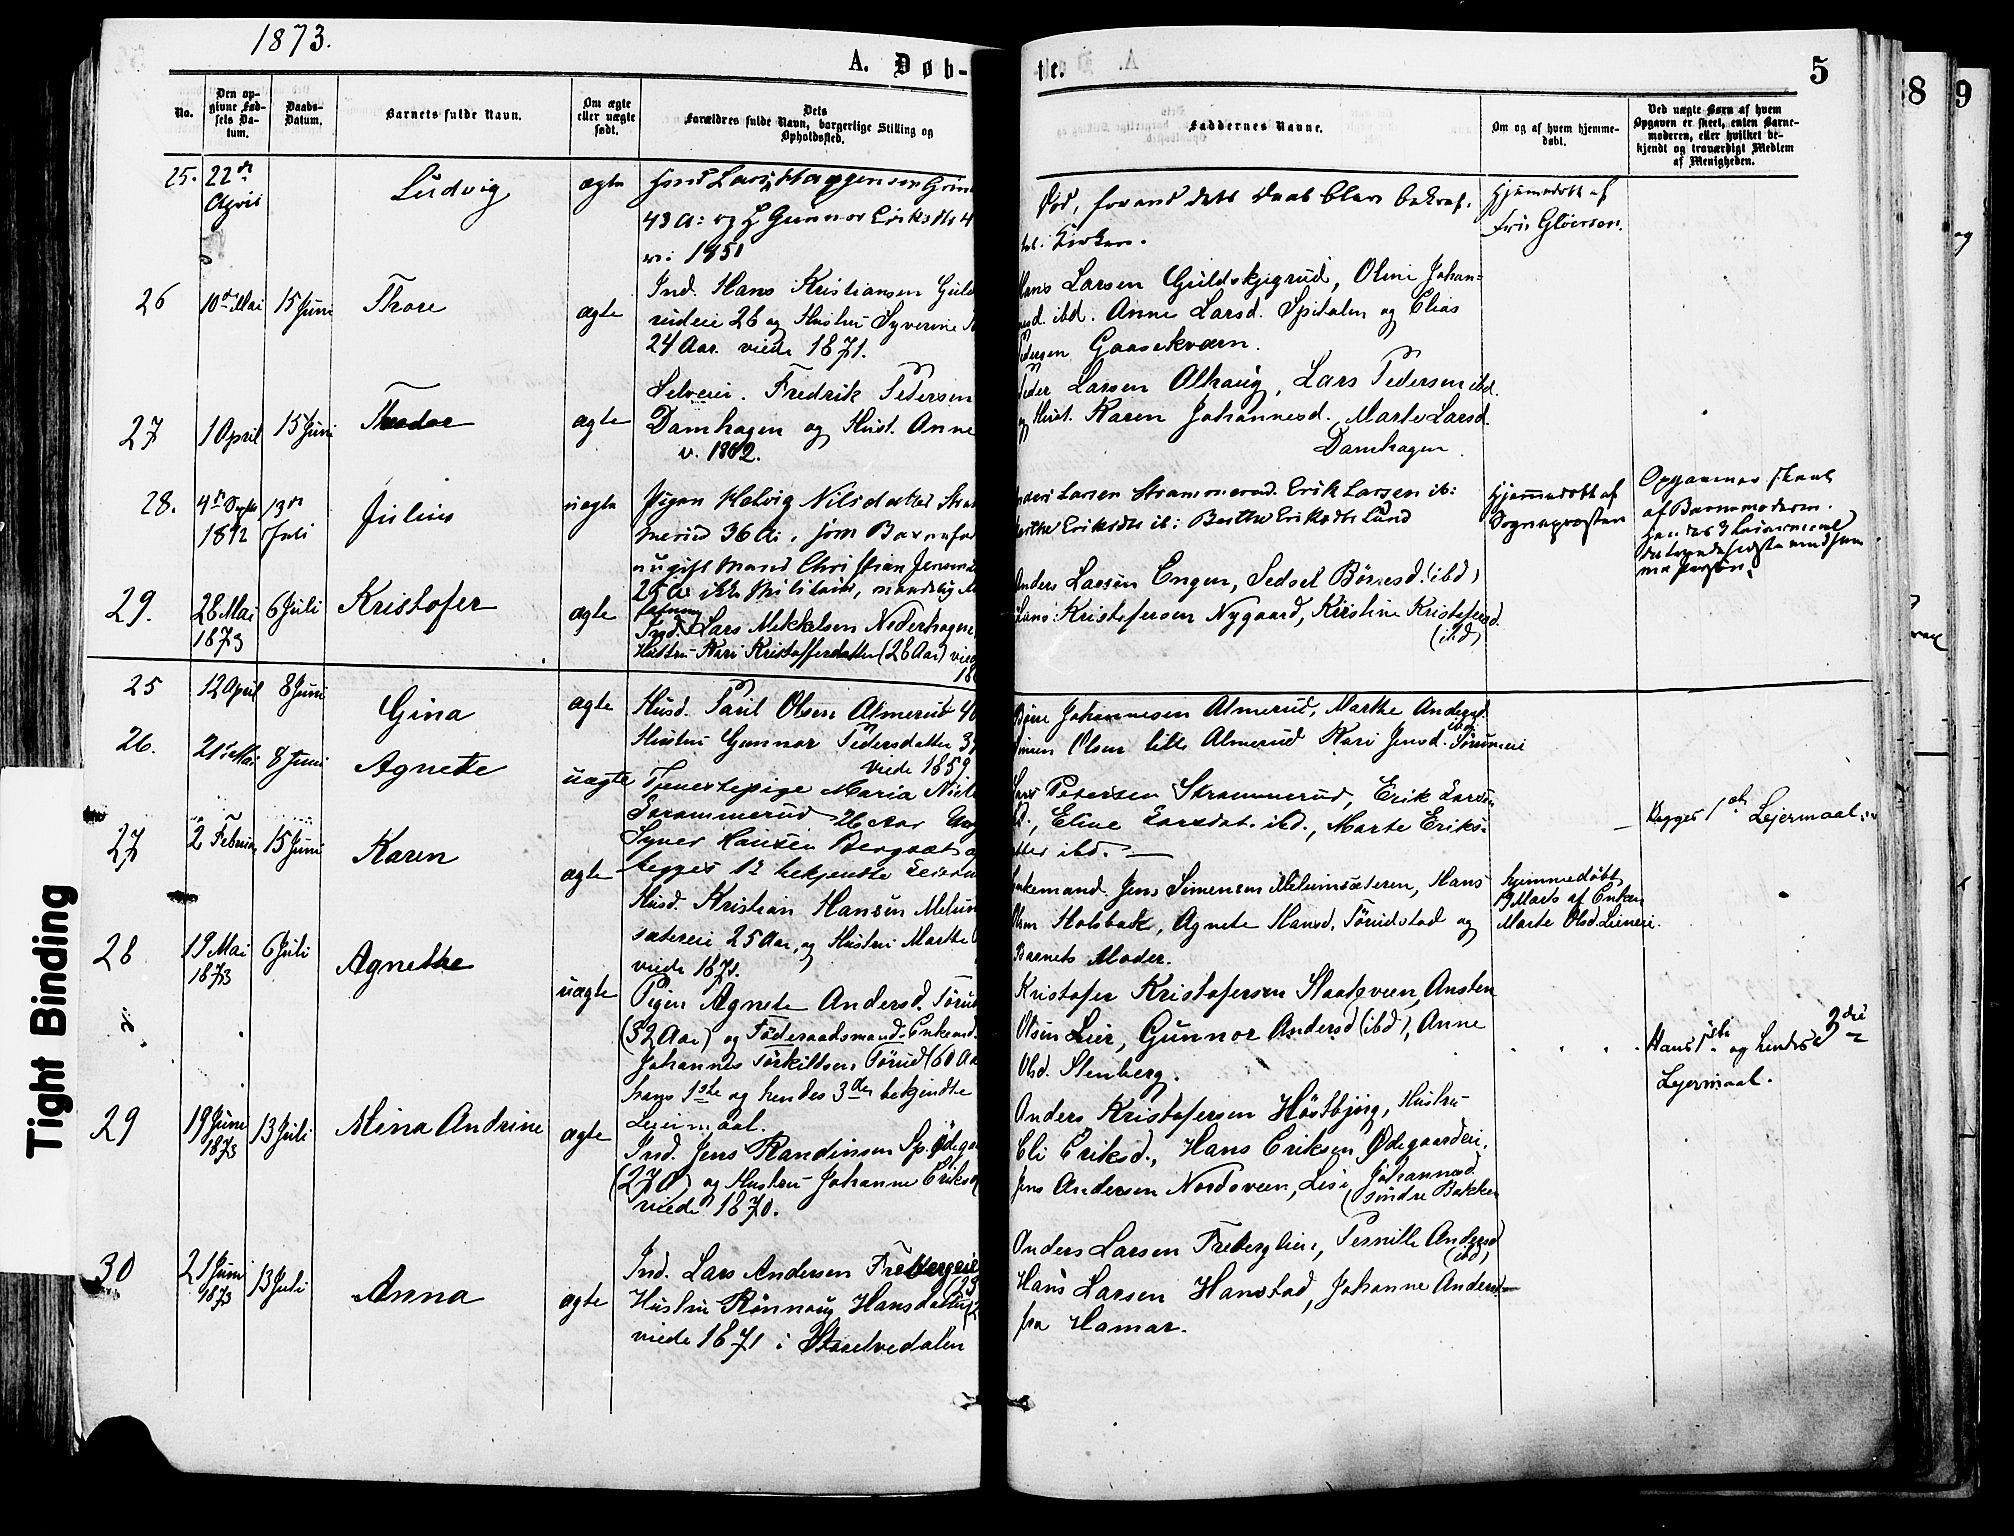 1873.
A. Døb-
te.
5
8
9
No.
Den op-
givne Fød-
sels Da-
tum.
Daabs-
Datum.
Barnets fulde Navn.
Om ægte
eller uægte
født.
Dets
Forældres fulde Navn, borgerlige Stilling og
Opholdssted.
Faddernes Navne.
Om og af hvem hjemme-
døbt.
Ved uægte Børn af hvem
Opgaven er skeet, enten Barne-
moderen, eller hvilket be-
kjendt og troværdigt Medlem
af Menigheden.
25. 22de April
Ludvig
ægte
Lars Haagensen
43 A: og H Gunnor Eriksdtr 4
v: 1851
Død, forend dets Daab blev bekræf.
i Kirken.
Hjemmedøbt af
Fru Gløersen.
26 10de Mai 15 Juni
Thore
ægte
Ind. Hans Kristiansen Guld
rudeie 26 og Hustru Syverine
24 Aar. viede 1871.
Hans Larsen Guldskjegrud, Oline Johan-
nesd. ibd. Anne Larsd. Spitalen og Elias
Pedersen Gaasekværn.
27 1 April 15 Juni
Theodor
ægte
Selveier. Fredrik Pedersen
Damhagen og Hust. Anne
v. 1862.
Peder Larsen Alhaug, Lars Pedersen ibd.
og Hust. Karen Johannesd. Marte Larsd.
Damhagen.
28. 4de Septb 1872 13de Juli
Julius
uægte
Pigen Helvig Nilsdatter Stram
merud 36 A., som Barnefader
ugift Mand Christian Jensen
25 A. ikke Militair, maadelig
forfatning
Anders Larsen Strammerud. Erik Larsen ib:
Marthe Eriksdtr ib: Berthe Eriksdtr Lund
Hjemmedøbt af
Sognepresten
Opgaven skeet
af Barnemoderen.
hendes 3 Leiermaal
29. 28 Mai 1873 6 Juli
Kristofer
ægte
Ind. Lars Mikkelsen Nederhagen
Hustru Kari Kristoffersdatter (26 Aar) viede
Anders Larsen Engen, Sedsel Børresd. (ibd)
Hans Kristofersen Nygaard, Kristine Kristofersd.
(ibd)
25 12 April 8 Juni
Gina
ægte
Husd. Paul Olsen Almerud 40
Hustru Gunnor Pedersdatter 37
viede 1859
Børre Johannesen Almerud, Marthe Andersd.
ibd.
Simen Olsen lille Almerud Kari Jensd. Sørumeie
26. 21 Mai 8 Juni
Agnethe
uægte
Tjenestepige Maria Niels
Strammerud 26 Aar Ung
Syver Hansen Bergsæt
begges 1ste bekjendte Leierm
Lars Petersen Strammerud, Erik Larsen
ibd., Eline Larsdat. ibd., Marte Eriks-
datter ibd.
Begges 1ste Lejermaal.
27 2 Februar 15 Juni
Karen
ægte
Husd. Kristian Hansen Melum
sætereie 25 Aar, og Hustru Marthe
viede 1871.
Enkemand. Jens Simensen Melumsæteren, Hans
Olsen Holsbak, Agnete Hansd. Tørudstad og
Barnets Moder.
hjemmedøbt
19 Marts af Enken
Marte Olsd. Leireie.
28 19 Mai 1873 6 Juli
Agnethe
uægte
Pigen Agnete Andersd. Tørud
(32 Aar) og Føderaadsmand Enkemd.
Johannes Torkildsen Tørud (60 Aar
hans 1ste og hendes 3die bekjendte
Leiermaal.
Kristofer Kristofersen Slaatsveen, Austen
Olsen Leier, Gunnor Andersd (ibd), Anne
Olsd. Stenberg.
Hans 1ste og hendes 3die
Lejermaal.
29 19 Juni 1873 13 Juli
Mina Andrine
ægte
Ind. Jens Randinsen Sp. Ødegaa
(27 A) og Hustru Johanne Eriksd
viede 1870.
Anders Kristofersen Høstbjørg, Hustru
Eli Eriksd., Hans Eriksen Ødegaardeie.
Jens Andersen Nordsveen, Lise Johannesd.
(søndre Bakken
30 21 Juni 1873 13 Juli
Anna
ægte
Ind. Lars Andersen Frebergeie
Hustru Rønnaug Hansdatter
viede 1871 i Storelvedalen
Anders Larsen Frebergeie, Pernille Andersd
(ibd)
Hans Larsen Hanstad, Johanne Andersd
fra Hamar.
Tight Binding